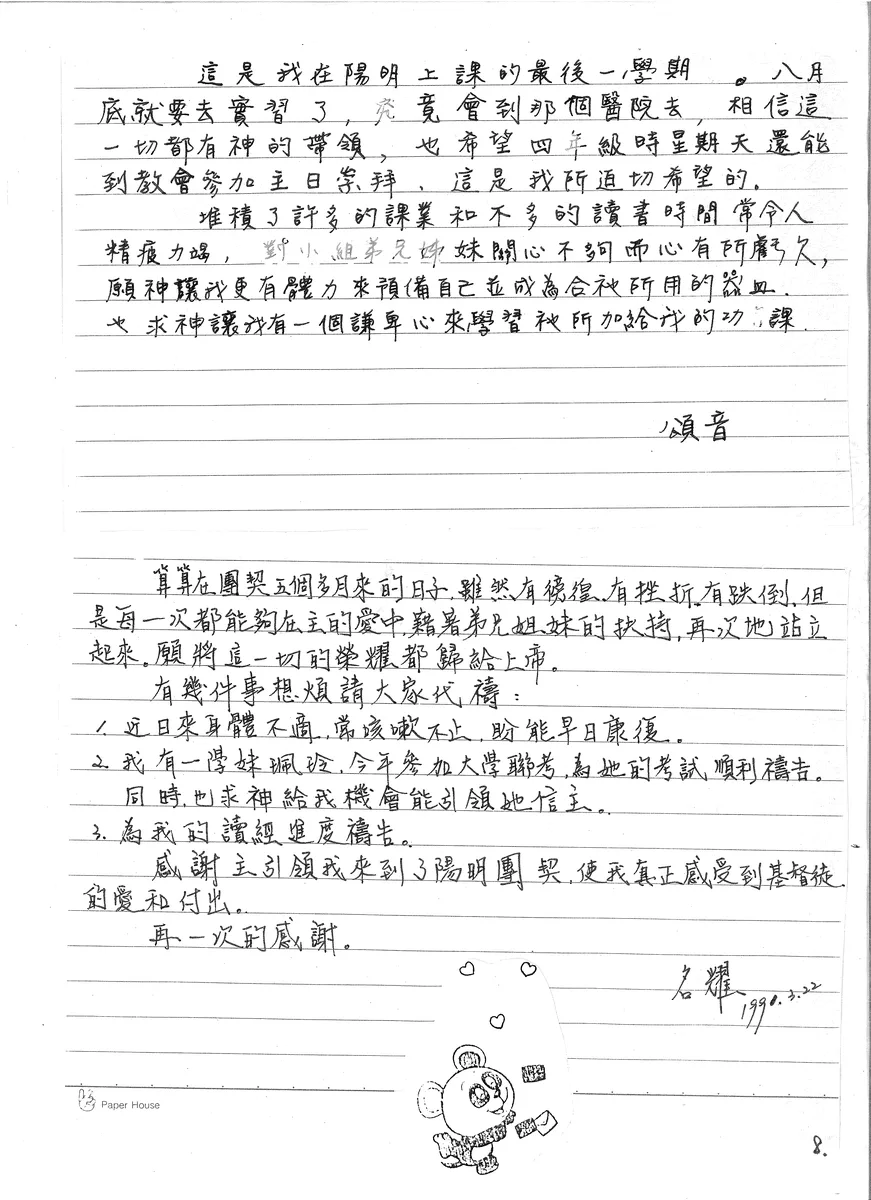 這是我在陽明上課的最後一學期。八月
底就要去實習了,究竟會到那個醫院去,相信這
一切都有神的帶領,也希望四年級時星期天還能
到教會參加主日崇拜、這是我所迫切希望的。
堆積了許多的課業和不多的讀書時間常令人
精疲力竭,對小組弟兄姊妹關心不夠而心有所虧欠,
願神讓我更有體力來預備自己並成為合祂所用的器皿.
也求神讓我有一個謙卑心來學習祂所加給我的功課.
頌音
算算在團契五個多月來的日子,雖然有徬徨、有挫折、有跌倒,但
是每一次都能夠在主的愛中,藉著弟兄姐妹的扶持,再次地站立
起來。願將這一切的榮耀都歸給上帝。
有幾件事想煩請大家代禱:
1. 近日來身體不適,常咳嗽不止,盼能早日康復。
2. 我有一學妹珮玲,今年參加大學聯考,為她的考試順利禱告。
同時,也求神給我機會能引領她信主。
3. 為我的讀經進度禱告。
感謝主引領我來到了陽明團契,使我真正感受到基督徒
的愛和付出。
再一次的感謝。
名耀
1990.3.22
Paper House
8.